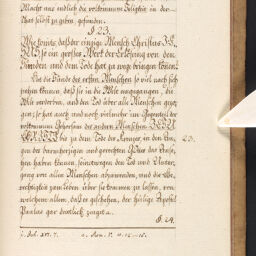 Macht uns endlich die vollkommene Seligkeit in der-
selbst zu geben gefunden.
§. 23.
Wie konnte daß der einzige Mensch Christus JE-
SUS so ein großes Werk der Erlösung von den
Sünden und dem Tode hat zu wege bringen können?
Hat die Sünde des ersten Menschen so viel nach sich
ziehen können, daß sie in die Welt eingegangen, die
Welt verdorben, und den Tod über alle Menschen gezo-
gen; so hat auch noch vielmehr im Gegentheil der
vollkommene Gehorsam des andern Menschen JESU
bis zu dem Tode der Kreuzes in den Au-
gen des barmherzigen und gerechten Gottes das Anse-
hen haben können, seinetwegen den Tod und
von allen Menschen abzuwenden, und die Ge-
rechtigkeit zum Leben über sie kommen zu lassen, von
welchem allem, daß es geschehen, der heilige Apostel
Paulus gar deutlich zeuget a.
§. 24.
23.
a. Rom. V. 12-18.